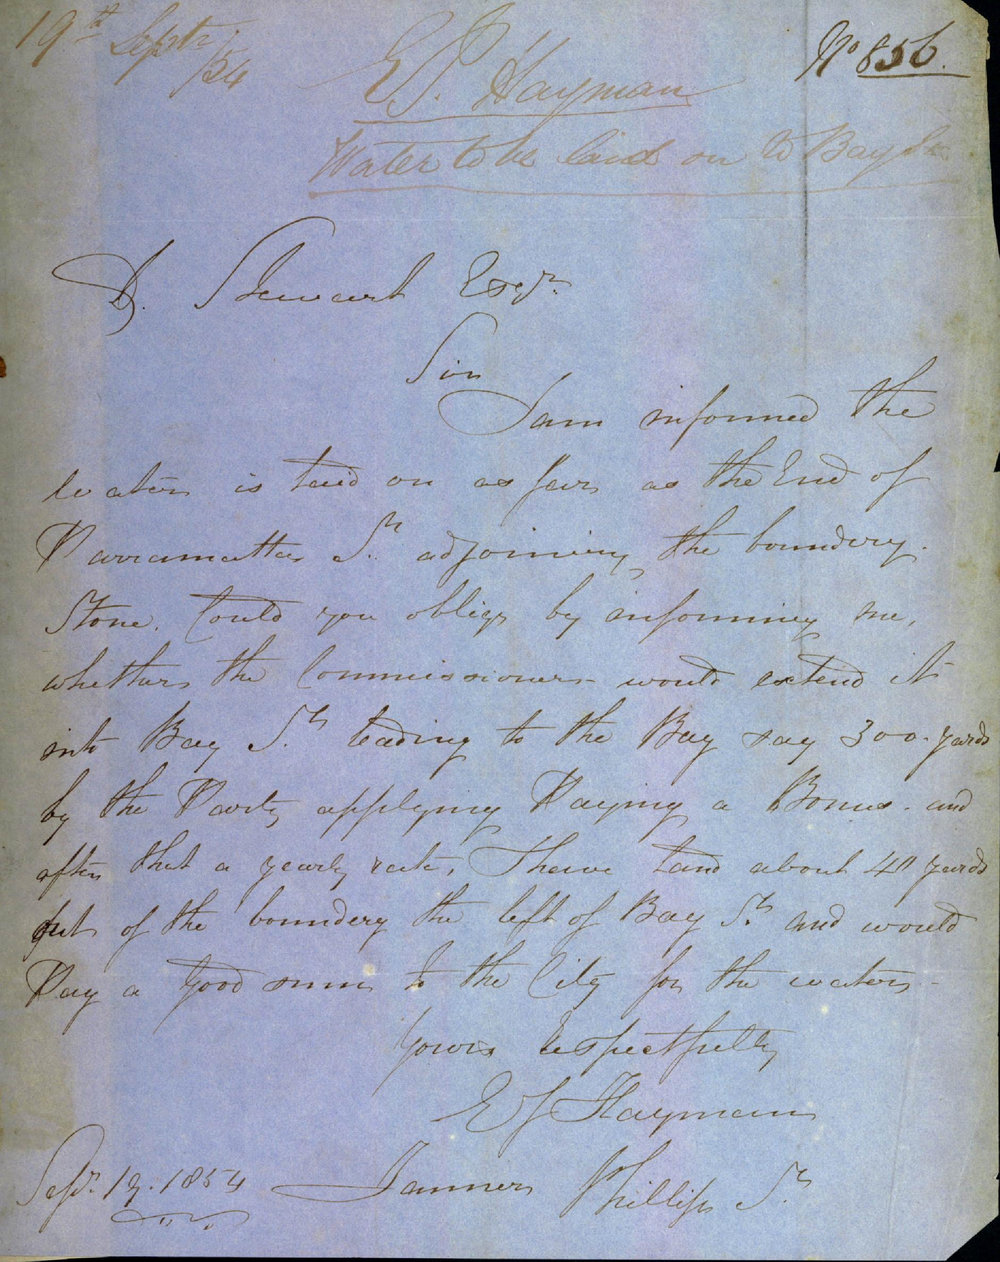 19th Septr /54
No 856.
E J. Hayman
Water to be laid on to Bay St
D. Stewart Esqr.
Sir
I am informed the
water is laid on as far as the End of
Parramatta St adjoining the boundery
Stone. Could you oblige by informing me,
whether the Commissioners would extend it
into Bay St leading to the Bay say 300 yards
by the Party applying Paying a Bonus and
after that a yearly rate, I have land about 40 yards
out of the boundery the left of Bay St and would
Pay a Good sum to the City for the water
Yours Respectfully
E J Hayman
Sepr. 19. 1854 Tanner Phillip St